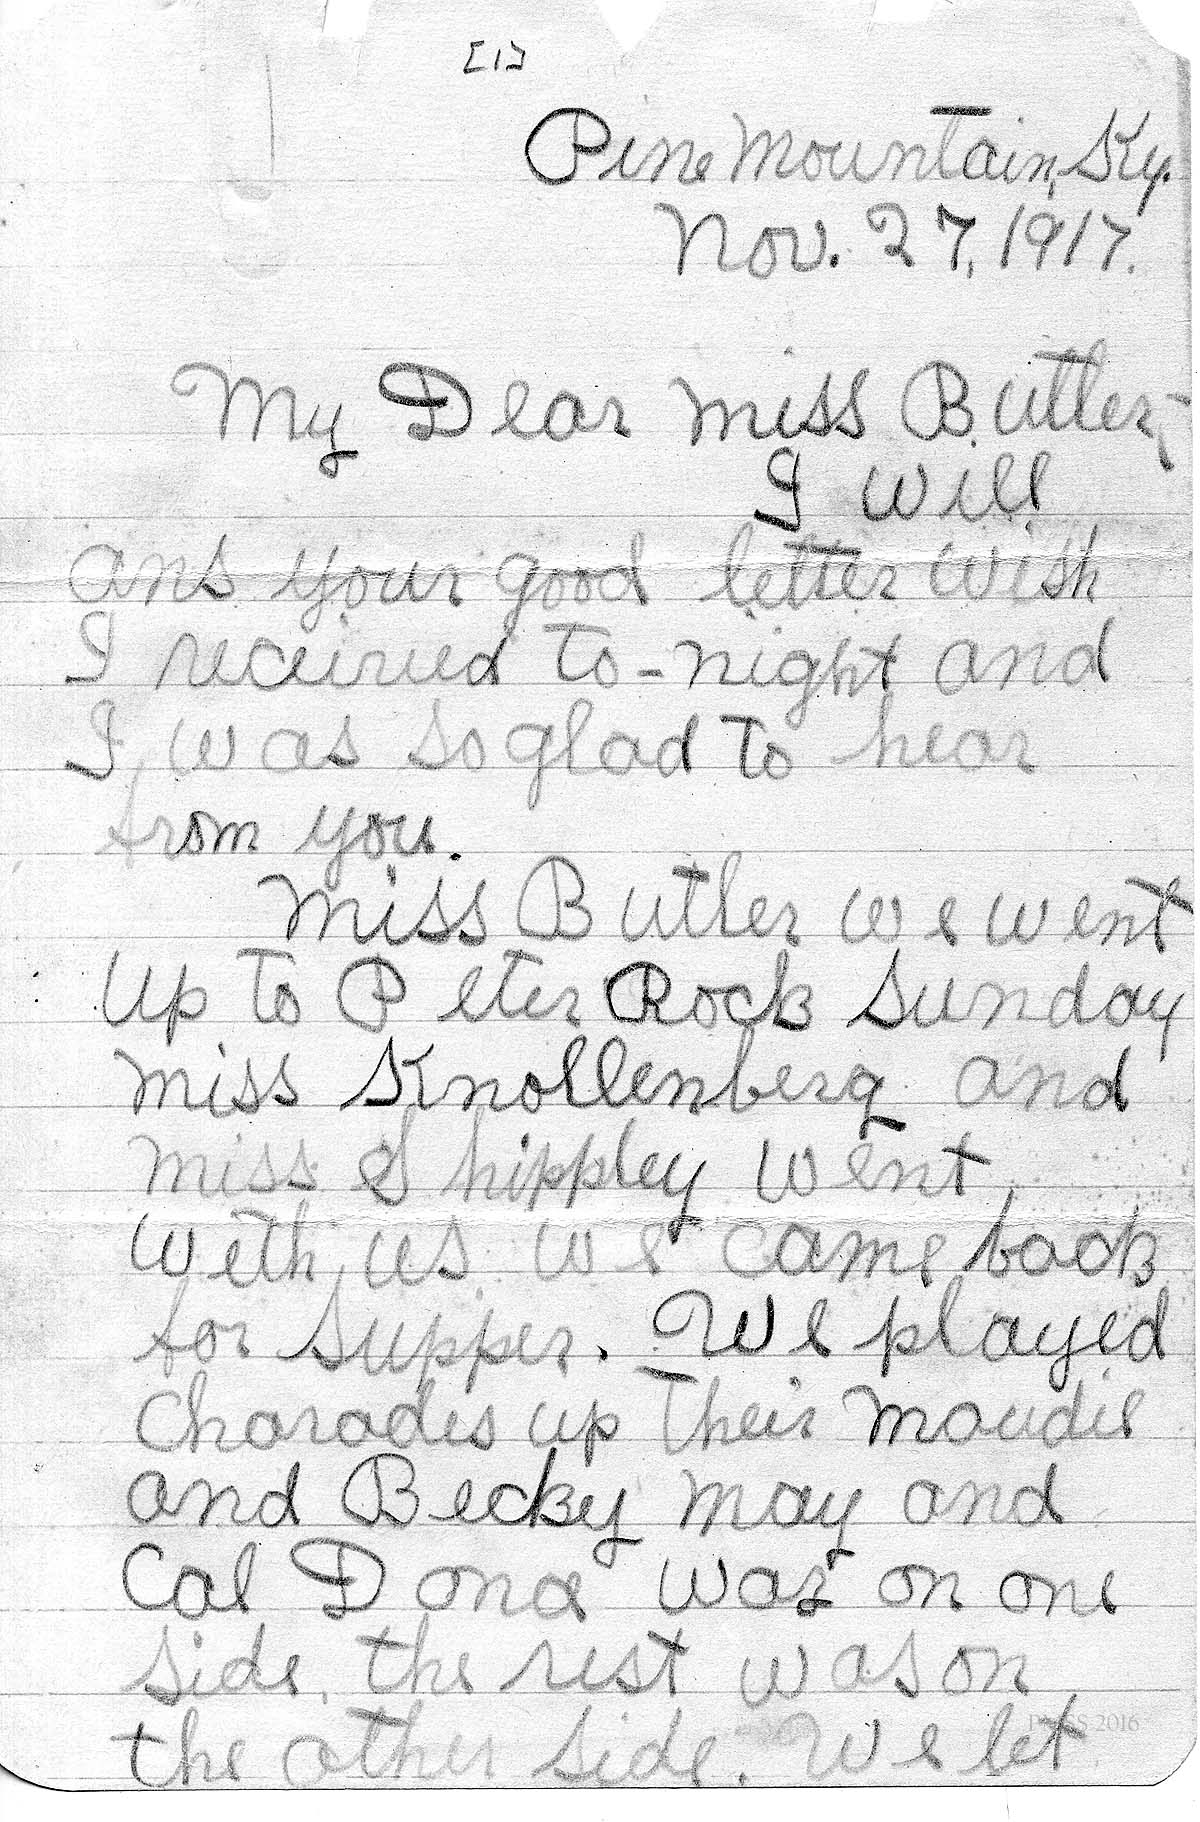 [1]
Pine Mountain, Ky.
Nov. 27, 1917.
My Dear Miss Butler,-
I will
ans your good letter wish
I received to-night and
I was so glad to hear
from you.
Miss Butler we went
up to Peter Rock Sunday
Miss Knollenberg and
Miss Shippley went
with us we came back
for supper. We played
Charades up their Maudie
and Becky May and
Cal Dona was on one
side, the rest was on
the other side. We let
PMSS 2016